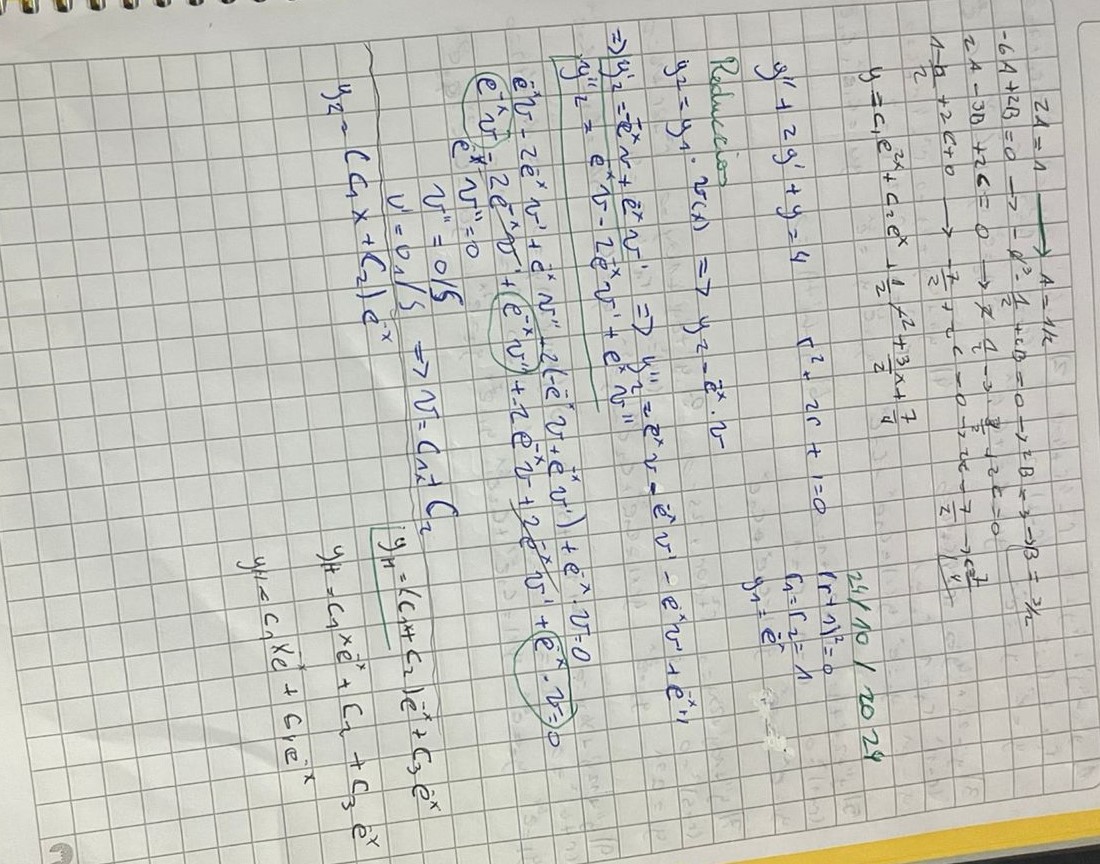 2A = 1 → A = 1/2
-6A + 2B = 0 → - 6³ · 1/2 + 2B = 0 → 2B = 3 → B = 3/2
2A - 3B + 2C = 0 → 2 · 1/2 - 3 · 3/2 + 2C = 0
-7/2 + 2C = 0 → 2C = 7/2 → C = 7/4
y = c₁e^{2x} + c₂e^x + 1/2 x² + 3/2 x + 7/4
24/10/2024
y'' + 2y' + y = 4 r² + 2r + 1 = 0 (r+1)² = 0
r₁ = r₂ = 1
y₁ = e^{-x}
Reduccion
y₂ = y₁ · v(x) => y₂ = e^{-x} · v
=> y'₂ = -e^{-x} v + e^{-x} v' => y''₂ = e^{-x} v - e^{-x} v' - e^{-x} v' + e^{-x} ''
y''₂ = e^{-x} v - 2e^{-x} v' + e^{-x} v''
e^{-x} v - 2e^{-x} v' + e^{-x} v'' - 2(-e^{-x} v + e^{-x} v') + e^{-x} · v = 0
e^{-x} v - 2e^{-x} v' + e^{-x} v'' + -2e^{-x} v + 2e^{-x} v' + e^{-x} · v = 0
e^{-x} v'' = 0
v'' = 0 /∫
v' = 0₁ /∫ => v = C₁x + C₂
y₂ = (C₁x + C₂) e^{-x}
y_H = (C₁x + C₂) e^{-x} + C₃ e^{-x}
y_H = C₁xe^{-x} + C₂ + C₃ e^{-x}
y_H = C₁xe^{-x} + C₄e^{-x}